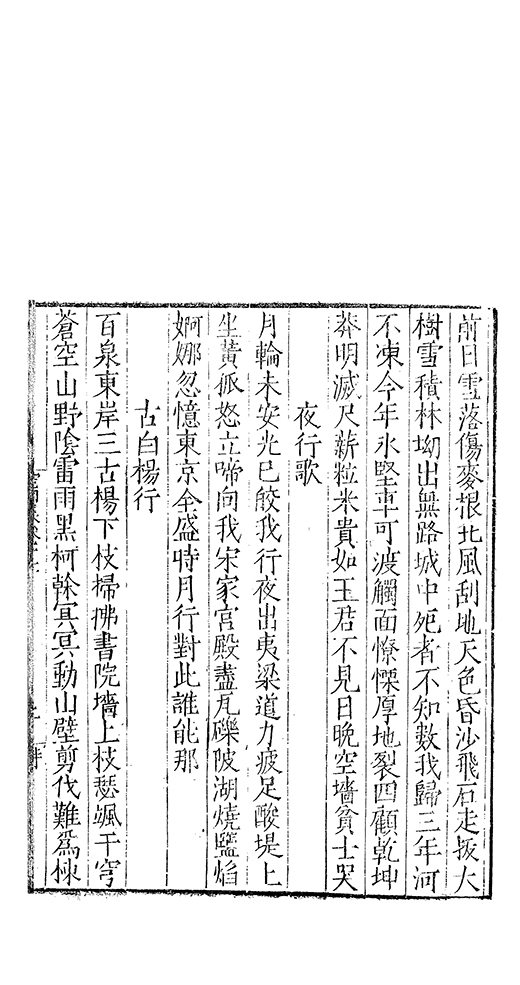 前日雪落傷麥根北風刮地天色昏沙飛石走拔大
樹雪積林坳出無路城中死者不知數我歸三年河
不凍今年氷堅車可渡觸面憭慄厚地裂四顧乾坤
莽明滅尺薪粒米貴如玉君不見日晚空墻貧士哭
夜行歌
月輪未安光已皎我行夜出夷梁道力疲足酸堤上
坐黃狐怒立啼向我宋家宮殿盡瓦礫陂湖燒鹽焰
婀娜忽憶東京全盛時月行對此誰能那
古白楊行
百泉東岸三古楊下枝掃拂書院墻上枝瑟颯干穹
蒼空山野陰雷雨黑柯榦冥冥動山壁剪伐難爲棟